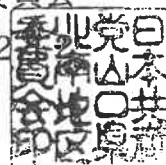 日本共産
党山口県
北南地区
委員会印